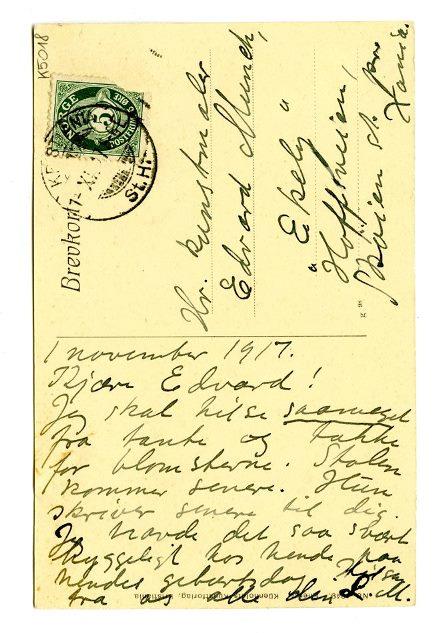 K5018
NORGE
5
POSTFRIM
KRISTIANIA
XI
St.H
Brevkort
Hr. kunstmaler
Edvard Munch,
"Ekely"
Hoffsveien,
Skøien st. pr.
Xania.
1 november 1917.
Kjære Edvard!
Jeg skal hilse saameget
fra tante og takke
for blomsterne. Stolen
kommer senere. Hun
skriver senere til dig.
Jeg havde det saa svært
hyggeligt hos hende paa
hendes geburtsdag. Hilsen
fra os alle
Kunstforlag, Kristiania